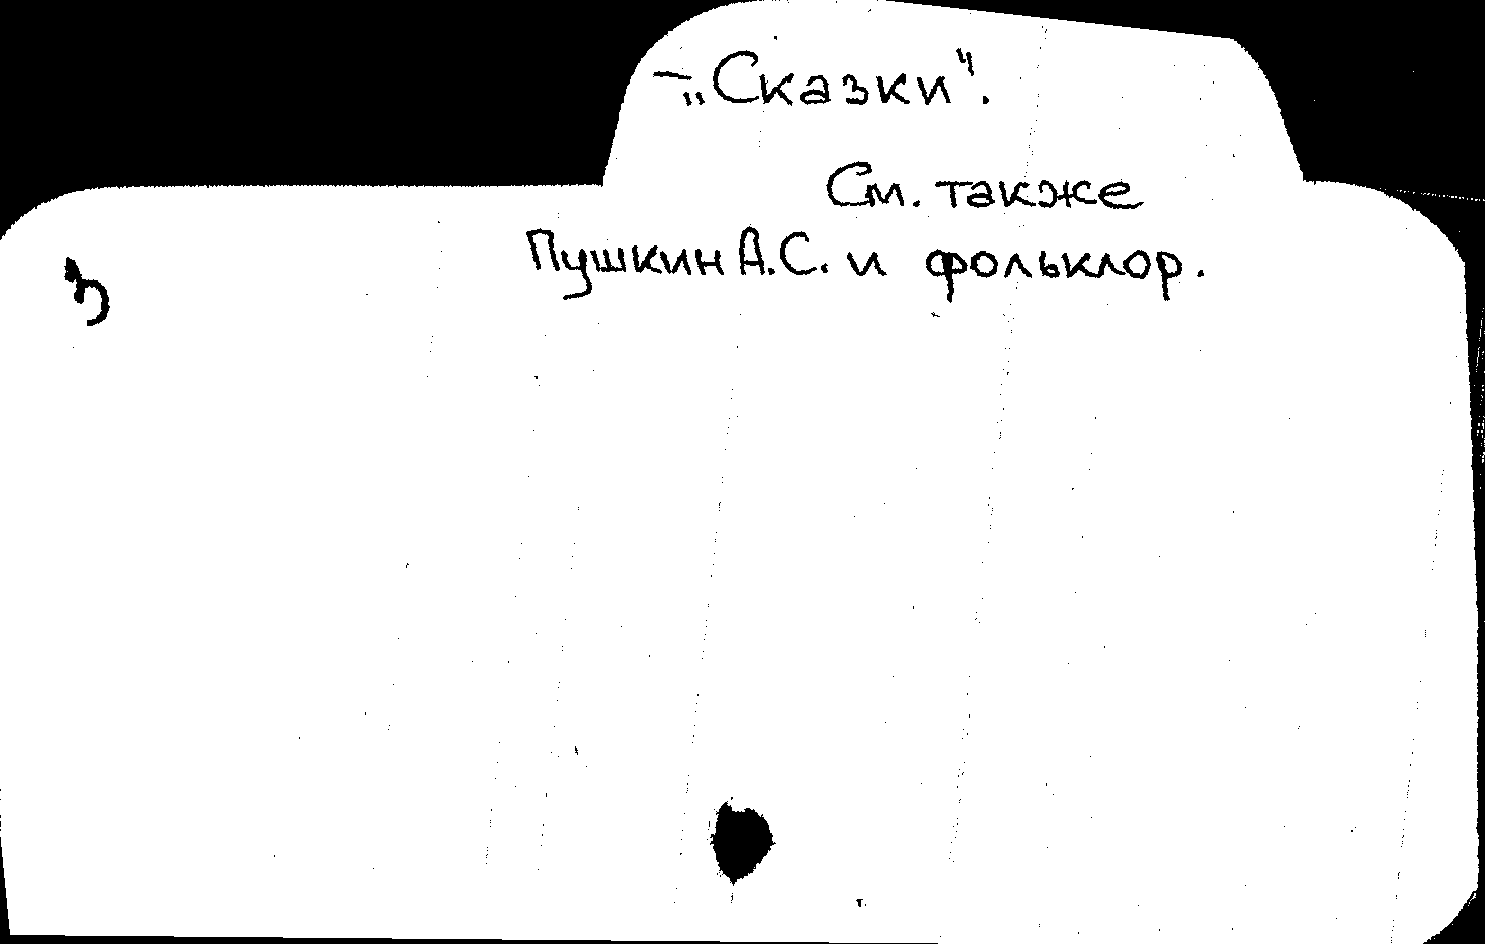 – „Сказки“.
См. также
Пушкин А.С. и фольклор.